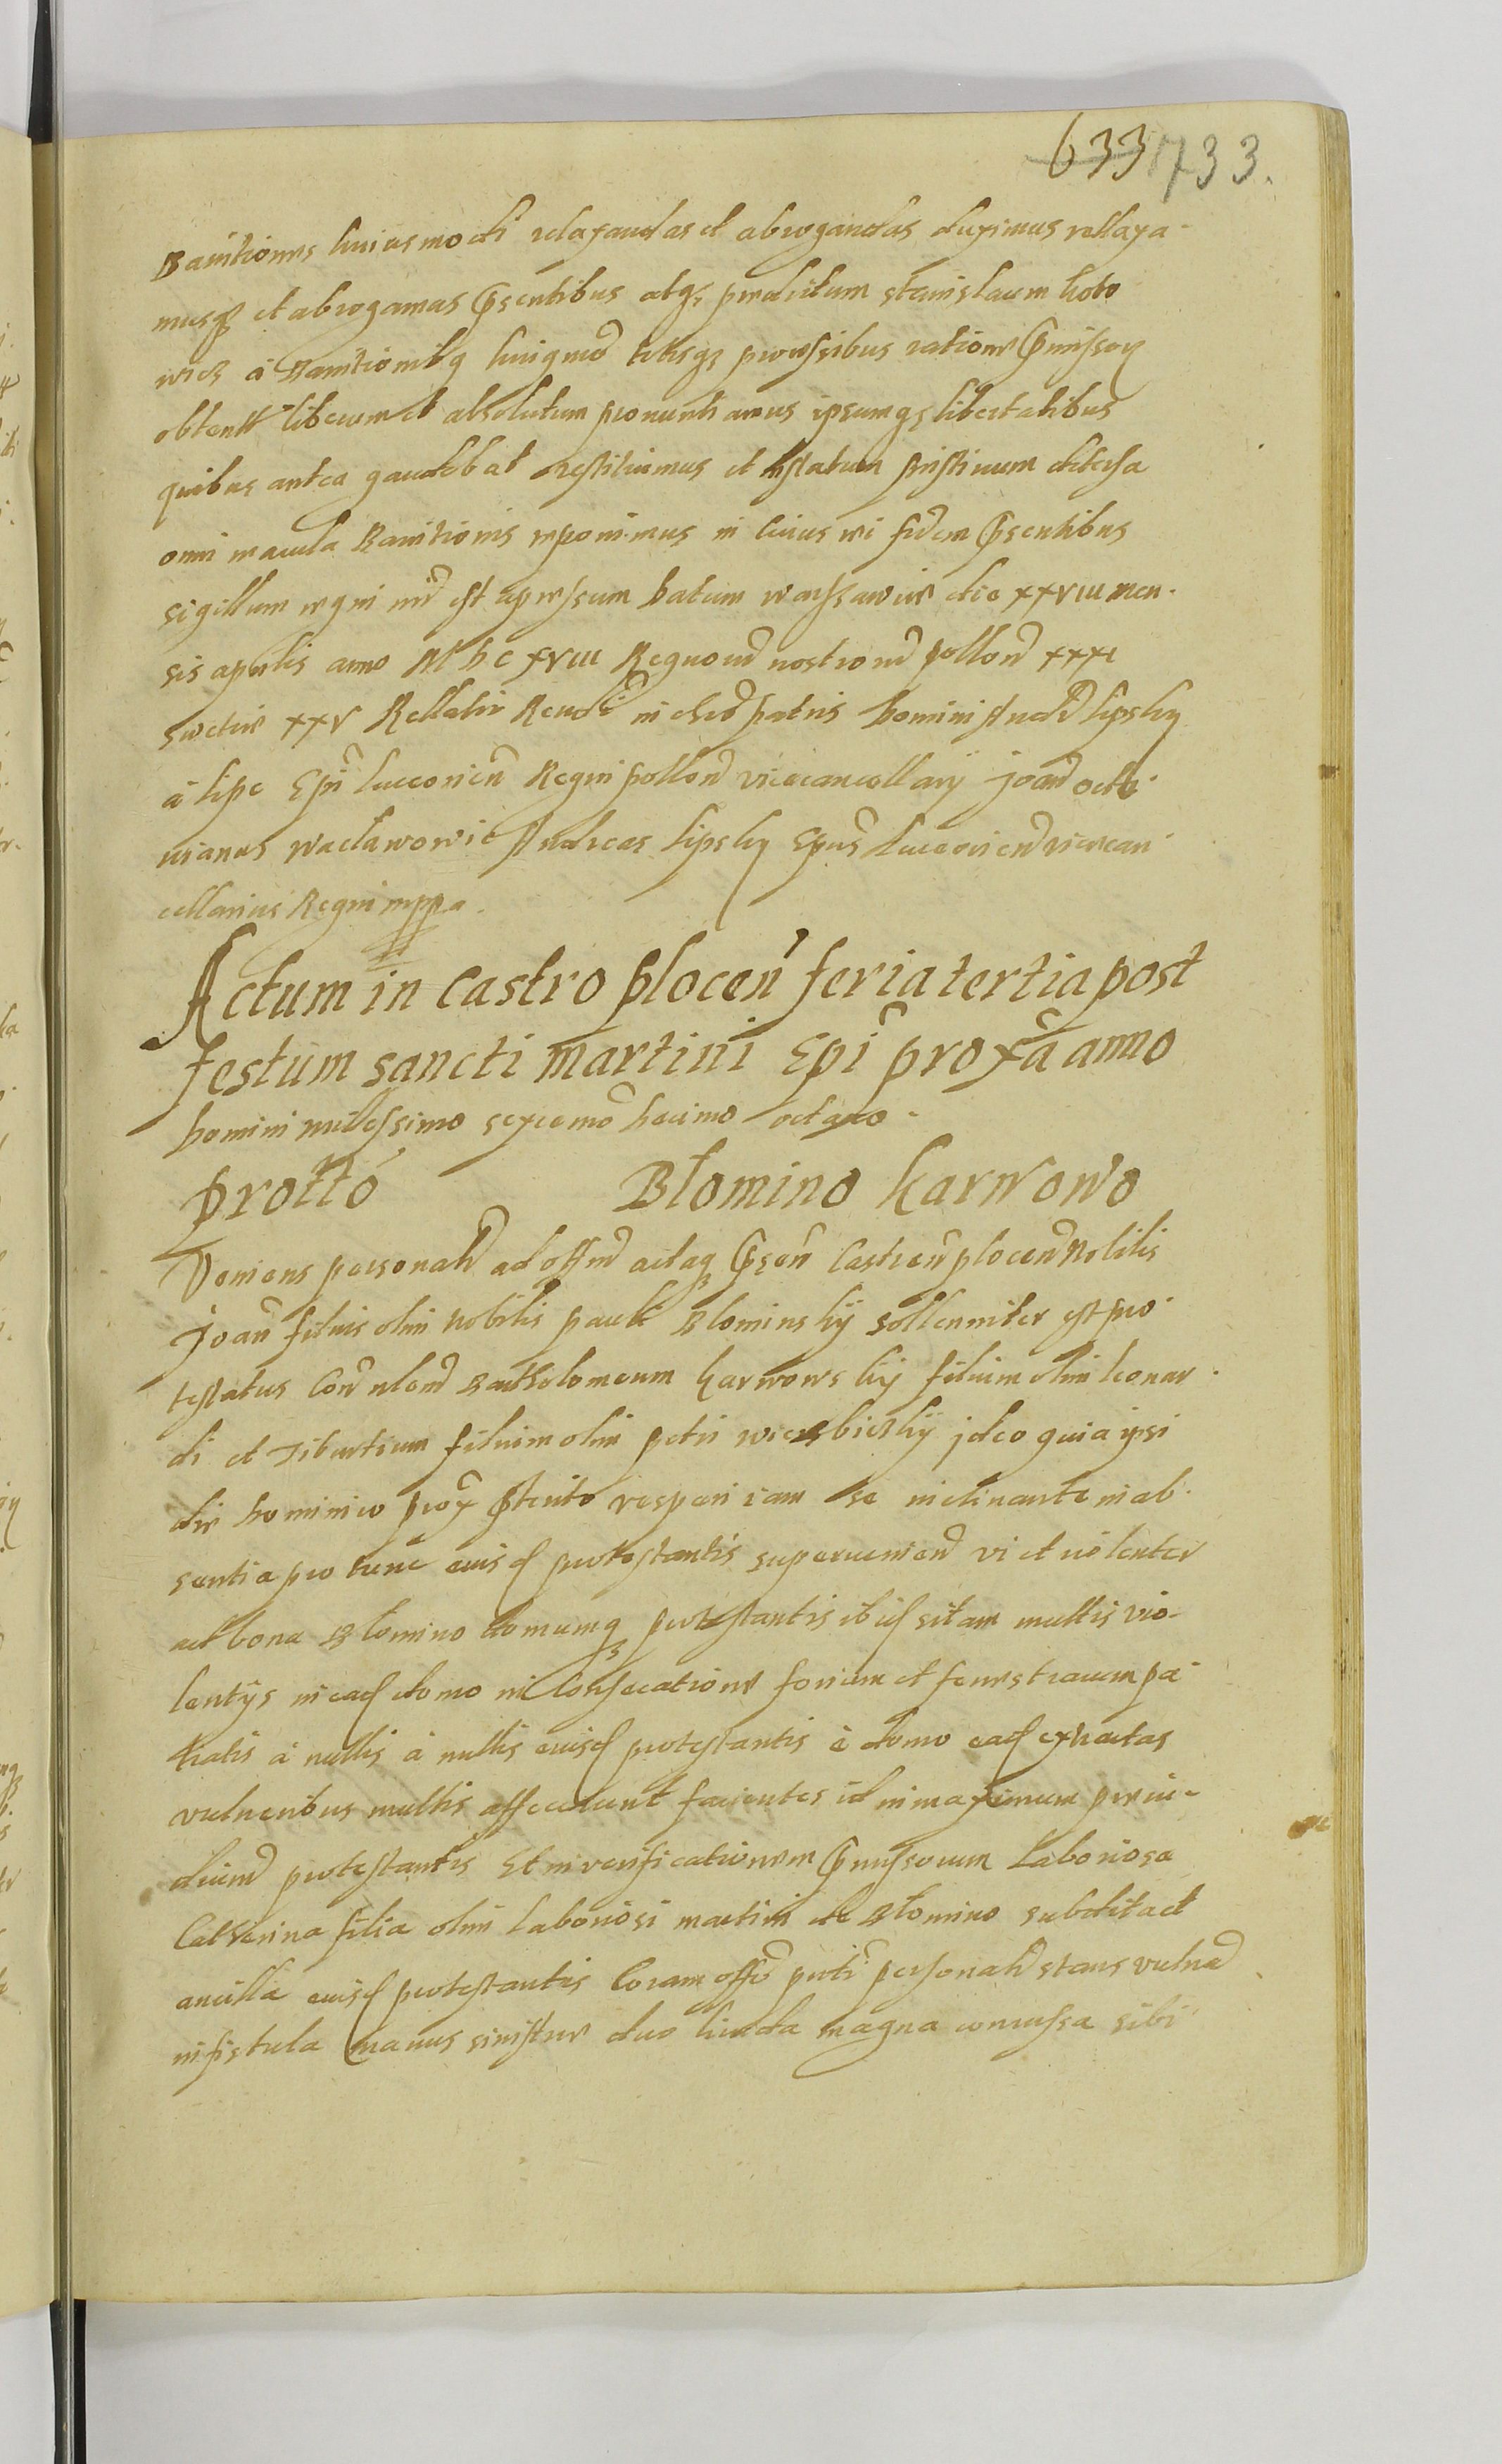 633 733.
Banitiones huiusmodi relaxandas et abrogandas duximus rellaxa-
musq et abrogamus p̃sentibus atq, praedictum stanislaum koto
wicz à Banitionibq huiqmõ totisq processibus ratione p̃missorꝫ
obtentt liberum et absolutum pronuntiamus ipsumq libertatibus
quibus antea gaudebat restituimus et instatum pristinum detersa
omni macula Banitionis reponimus in cuius rei fidem p̃sentibus
sigillum regni nrõ est apressum Datum warszawiæ die XXVIII men-
sis aprilis anno MDCXVIII Regnorũ nostrorũ pollonõ XXXI
suetiæ XXV Rellatio Reudĩ in chrõ patris Domini Andẽ lipsky
à lipe Epĩ luceorieñ Regni pollonõ vicecancellarÿ joanõ octa-
uianus wacławowic Andreas lipsky Epũs luceorienõ vicecan-
cellarius Regni mppa.
Actum in castro plocen̄ feria tertia post
festum sancti martini Epĩ proxã anno
Domini millesimo sexcemõ Decimo octauo-
protto Blomino karwowo
Veniens personalr̃ ad offm̃ actaqꝫ p̃sen̄ Castren̄ plocenõ Nobilis
Joan̄ filius olim nobilis pauli Blominskÿ sollenniter est pro-
testatus Con̄ nlem̄ Bartholomeum karwowskÿ filium olim leonar-
di et Tiburtium filium olim petri wierzbickÿ jdeo quia ipsi
die Dominico prox̃ p̃terito vesperi iam se inclinante in ab-
sentia pro tunc eiusd protestantis superueniendõ vi et violenter
ad bona Blomino domumqꝫ protestantis ibid sitam multis vio-
lentÿs in ead domo in Consecatione forium et fenestrarum pa-
tratis à nullis à nullis eiusd protestantis è domo ead extractas
vulneribus multis affecerunt facientes id in maximum preiu-
diciũ protestantis Et in verificationem p̃missorum Laboriosa
Catherina filia olim laboriosi martini de Blomino subdita et
ancilla eiusd protestantis Coram offõ p̃nti personalr̃ stans vulnã
in fistula manus sinistræ duo liuida magna concussa sibi